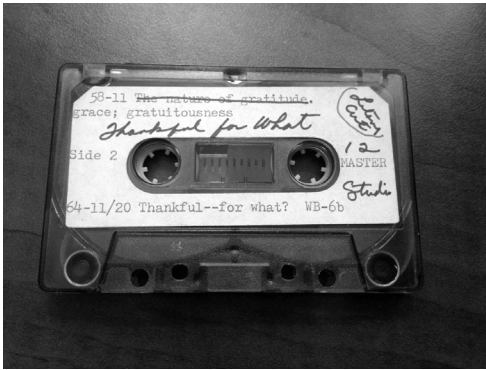 58-11 The nature of gratitude.
grace; gratuitousness
Thankful for What
Side 2
12
MASTER
Studio
64-11/20 Thankful--for what? WB-6b